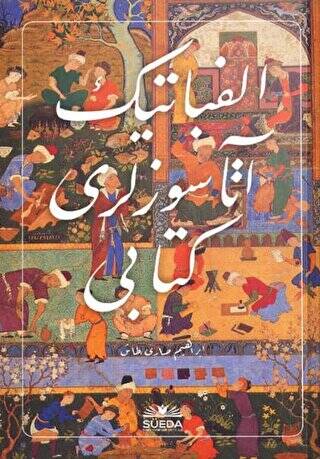 الفباتيك
آتا سوزلرى
كتابى
ابراهيم صارى طاش
SÜEDA